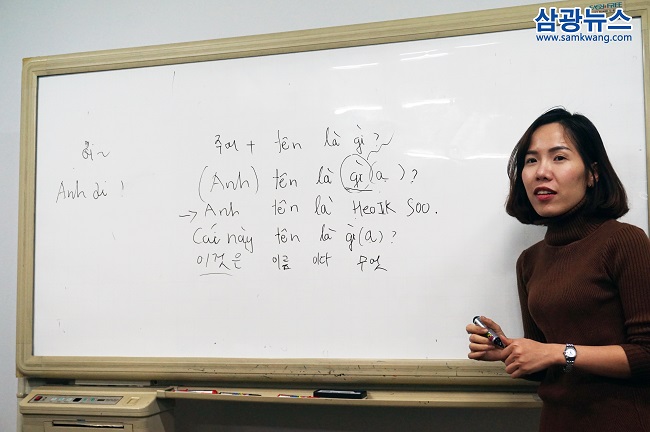 삼광뉴스
www.samkwang.com
주어 + tên là gì ?
(Anh) tên là gì (ạ) ?
→ Anh tên là Heo IK Soo.
Cái này tên là gì (ạ) ?
이것은 이름 이다 무엇
Anh ơi !